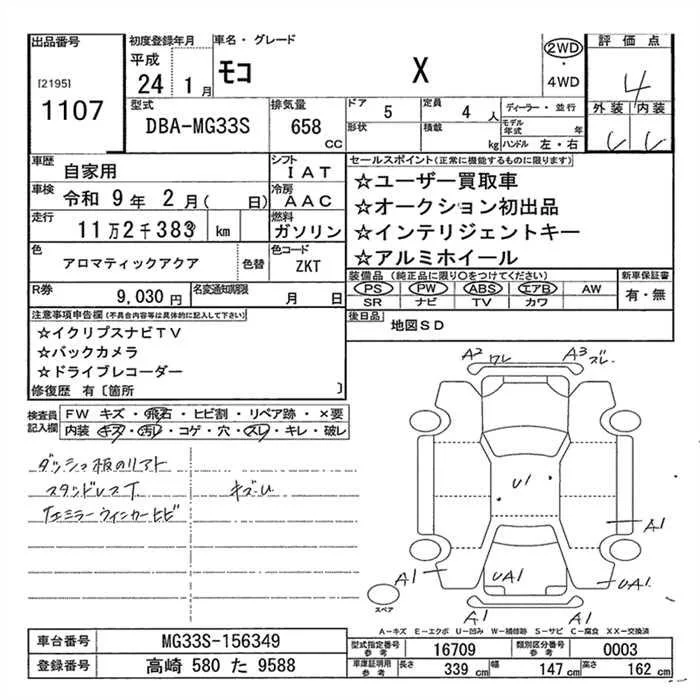 出品番号
[2195]
1107
初度登録年月
平成
24 1月
車名・グレード
モコ X
2WD
・
4WD
評価点
4
外装 内装
型式
DBA-MG33S
排気量
658
CC
ドア 5
定員 4人
形状
積載 kg
ディーラー・並行
モデル年式 年
ハンドル 左・右
車歴 自家用
シフト IAT
車検 令和 9年 2月( 日)
冷房 AAC
走行 11万2千383 km
燃料 ガソリン
色 アロマティックアクア 色替
色コード ZKT
R券 9,030円
名変通知期限 月 日
セールスポイント(正常に機能するものに限ります)
☆ユーザー買取車
☆オークション初出品
☆インテリジェントキー
☆アルミホイール
装備品(純正品に限り○をつけてください)
PS PW ABS エアB AW
SR ナビ TV カワ
新車保証書
有・無
後日品
地図SD
注意事項申告欄(不具合内容等は具体的に記入して下さい)
☆イクリプスナビTV
☆バックカメラ
☆ドライブレコーダー
修復歴 有〔箇所 〕
検査員記入欄
FW キズ・飛石・ヒビ割・リペア跡・×要
内装・キズ・汚レ・コゲ・穴・スレ・キレ・破レ
キズU
A2 ワレ
A3 ズレ
U1
A1
A1
UA1
UA1
A1
A1
スペア
A-キズ E-エクボ U-凹み W-補修跡 S-サビ C-腐食 XX-交換済
車台番号 MG33S-156349
登録番号 高崎 580 た 9588
型式指定番号 参考 16709
類別区分番号 参考 0003
車庫証明用 参考 長さ 339cm 幅 147cm 高さ 162cm